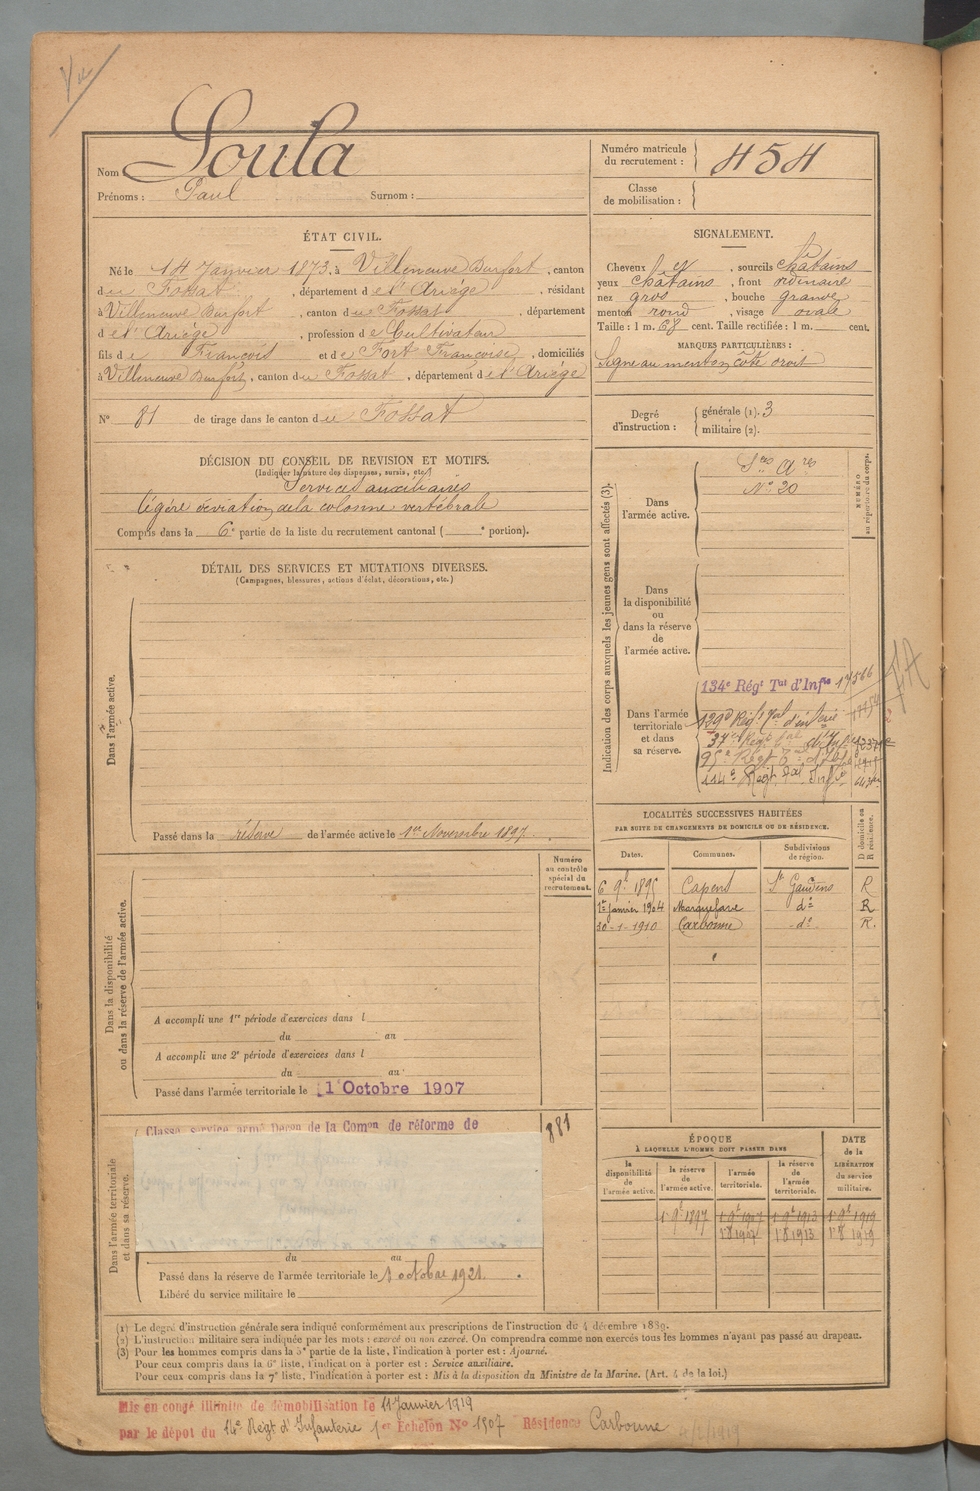 Vu
Nom Soula
Prénoms : Paul Surnom :
Numéro matricule du recrutement : 454
Classe de mobilisation :
ÉTAT CIVIL.
Né le 14 Janvier 1873, à Villeneuve Durfort, canton
du Fossat, département de l'Ariège, résidant
à Villeneuve Durfort, canton du Fossat, département
de l'Ariège, profession de Cultivateur
fils de François et de Fort Françoise, domiciliés
à Villeneuve Durfort, canton du Fossat, département de l'Ariège
N° 81 de tirage dans le canton du Fossat
SIGNALEMENT.
Cheveux et, sourcils châtains
yeux châtains, front ordinaire
nez gros, bouche grande
menton rond, visage ovale
Taille : 1 m. 68 cent. Taille rectifiée : 1 m. cent.
MARQUES PARTICULIÈRES :
Signe au menton côté droit
Degré d'instruction : générale (1). 3
militaire (2).
DÉCISION DU CONSEIL DE REVISION ET MOTIFS.
(Indiquer la nature des dispenses, sursis, etc.)
Services auxiliaires
légère déviation de la colonne vertébrale
Compris dans la 6e partie de la liste du recrutement cantonal ( e portion).
DÉTAIL DES SERVICES ET MUTATIONS DIVERSES.
(Campagnes, blessures, actions d'éclat, décorations, etc.)
Dans l'armée active.
Passé dans la réserve de l'armée active le 1er Novembre 1897.
Indication des corps auxquels les jeunes gens sont affectés (3).
NUMÉRO au répertoire du corps.
Dans l'armée active.
Sces Ares
N° 20
Dans la disponibilité ou dans la réserve de l'armée active.
Dans l'armée territoriale et dans sa réserve.
134e Régt Tal d'Infie 17566
129e Régt Tal d'inferie
37e Régt tal d'Infie
95e Régt Tal d'Infie
114e Régt Tal Infie
LOCALITÉS SUCCESSIVES HABITÉES
PAR SUITE DE CHANGEMENTS DE DOMICILE OU DE RÉSIDENCE.
D domicile ou R résidence.
Dates. Communes. Subdivisions de région.
6 9e 1895 Capens St Gaudens R
1er janvier 1904 Marquefave do R
30-1-1910 Carbonne do R.
Dans la disponibilité ou dans la réserve de l'armée active.
Numéro au contrôle spécial du recrutement.
A accompli une 1re période d'exercices dans l
du au
A accompli une 2e période d'exercices dans l
du au
Passé dans l'armée territoriale le 1 Octobre 1907
Dans l'armée territoriale et dans sa réserve.
Classé service armé Décon de la Comon de réforme de
881
du au
Passé dans la réserve de l'armée territoriale le 1 octobre 1921.
Libéré du service militaire le
ÉPOQUE
À LAQUELLE L'HOMME DOIT PASSER DANS
DATE de la LIBÉRATION du service militaire.
la disponibilité de l'armée active. la réserve de l'armée active. l'armée territoriale. la réserve de l'armée territoriale.
1 9e 1897 1 9e 1907 1 9e 1913 1 9e 1919
1 8 1907 1 8 1913 1 8 1919
(1) Le degré d'instruction générale sera indiqué conformément aux prescriptions de l'instruction du 4 décembre 1889.
(2) L'instruction militaire sera indiquée par les mots : exercé ou non exercé. On comprendra comme non exercés tous les hommes n'ayant pas passé au drapeau.
(3) Pour les hommes compris dans la 5e partie de la liste, l'indication à porter est : Ajourné.
Pour ceux compris dans la 6e liste, l'indication à porter est : Service auxiliaire.
Pour ceux compris dans la 7e liste, l'indication à porter est : Mis à la disposition du Ministre de la Marine. (Art. 4 de la loi.)
Mis en congé illimité de démobilisation le 11 Janvier 1919
par le dépôt du 14e Régt d'Infanterie 1er Echelon No 1507 Résidence Carbonne